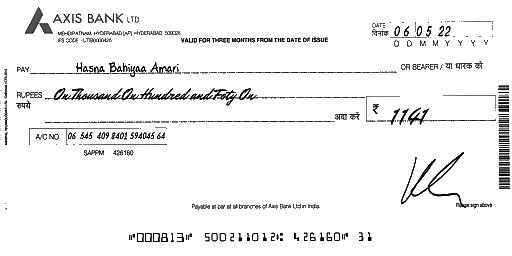 AXIS BANK LTD
MEHDIPATNAM, HYDERABAD [AP] HYDERABAD 500028
IFS CODE - UTIB0000426
VALID FOR THREE MONTHS FROM THE DATE OF ISSUE
DATE
दिनांक 06 05 22
D D M M Y Y Y Y
PAY Hasna Bahiyaa Amari OR BEARER / या धारक को
RUPEES On Thousand On Hundred and Foty On
रुपये
अदा करें ₹ 1141
A/C NO 06 545 409 8401 594045 64
SAPPM 426160
Payable at par at all branches of Axis Bank Ltd in India.
Please sign above
"000813" 500211012: 426160" 31